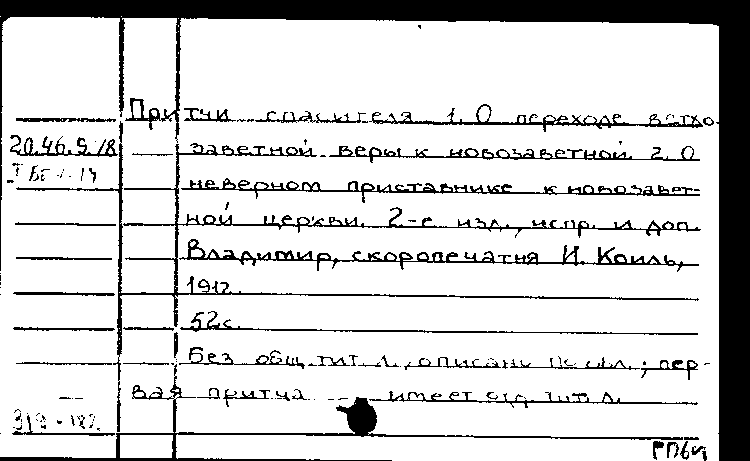 Притчи спасителя 1. О переходе ветхо-
20.46.5./8 заветной веры к новозаветной. 2. О
неверном приставнике к новозавет-
ной церкви. 2-е изд., испр. и доп.
Владимир, скоропечатня И. Коиль,
1912.
52с.
Без общ. тит. л., описано по обл.; пер-
вая притча имеет отд. тит. л.